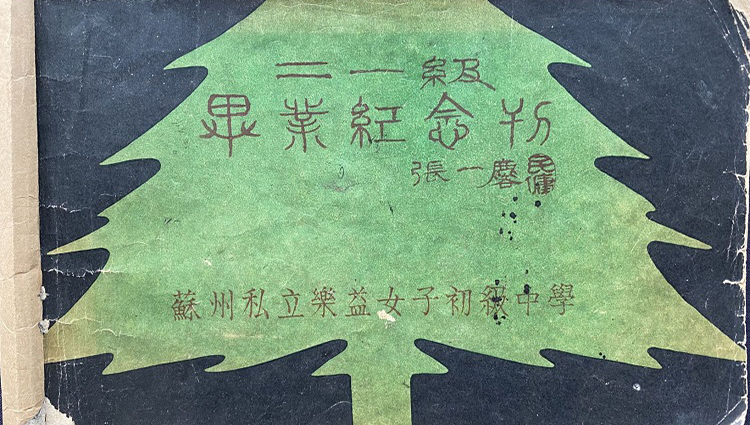 二一級
畢業紀念刊
張一麐 民傭
蘇州私立樂益女子初級中學